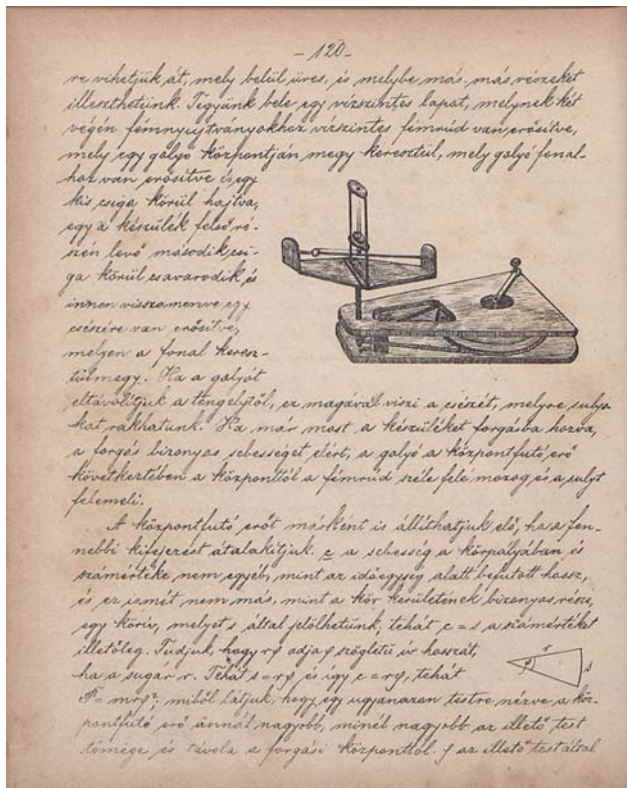 - 120 -
re vihetjük át, mely belül üres, és melybe más-más részeket
illeszthetünk. Tegyünk bele egy vízszintes lapat, melynek két
végén fémnyujtványokhoz vízszintes fémrúd van erősítve,
mely egy galyó központján megy keresztül, mely galyó fonal-
hoz van erősítve és egy
kis csiga körül hajtva,
egy a készülék felső ré-
szén levő második csi-
ga körül csavarodik és
innen visszamenve egy
csészére van erősítve,
melyen a fonal keresz-
tülmegy. Ha a galyót
eltávolítjuk a tengelytől, ez magával viszi a csészét, melyre sulyo-
kat rakhatunk. Ha már most a készüléket forgásba hozva,
a forgás bizonyos sebességet elért, a galyó a központfutó erő
következtében a központtól a fémrúd széle felé mozog és a sulyt
felemeli.
A központfutó erőt másként is állíthatjuk elő, ha a fen-
nebbi kifejezést átalakítjuk. c a sebesség a körpályában és
számértéke nem egyéb, mint az időegység alatt befutott hossz,
és ez ismét nem más, mint a kör kerületének bizonyos része,
egy körív, melyet s által jelölhetünk, tehát c = s a számértéket
illetőleg. Tudjuk, hogy rφ adja φ szögletű ív hosszát,
ha a sugár r. Tehát s = rφ és így c = rφ, tehát
r
φ
s
P = mrφ²; miből látjuk, hogy egy ugyanazon testre nézve a köz-
pontfutó erő annál nagyobb, minél nagyobb az illető test
tömege és távola a forgási központtól. φ az illető test által